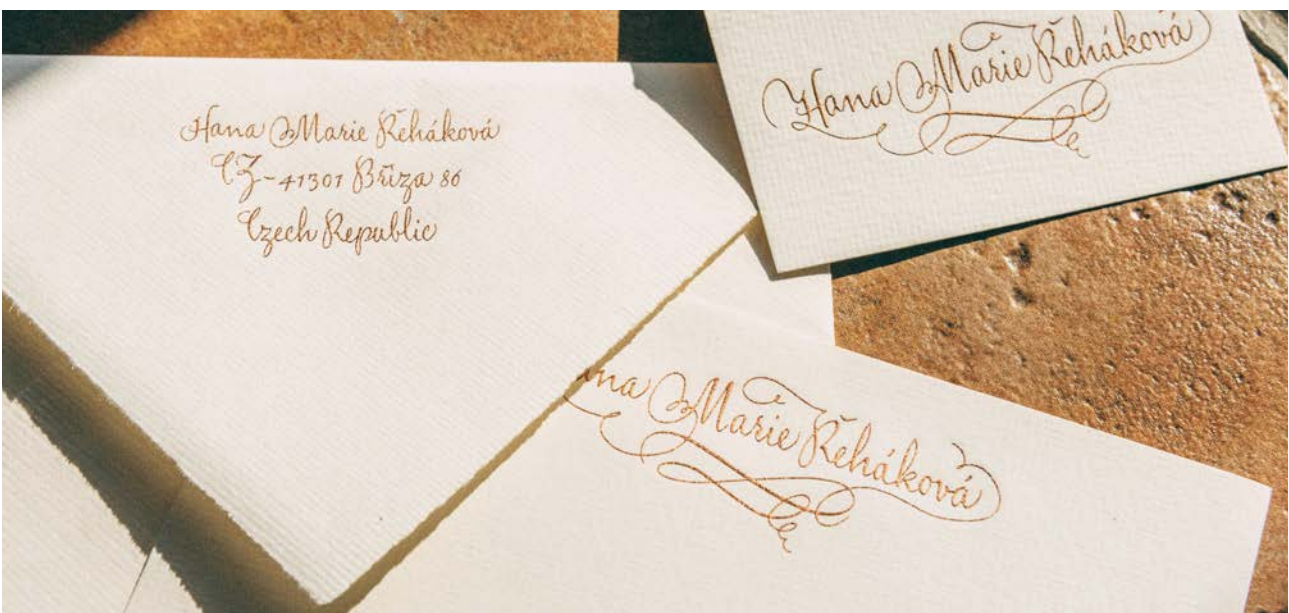 Hana Marie Řeháková
CZ-41301 Bříza 86
Czech Republic
Hana Marie Řeháková
Marie Řeháková